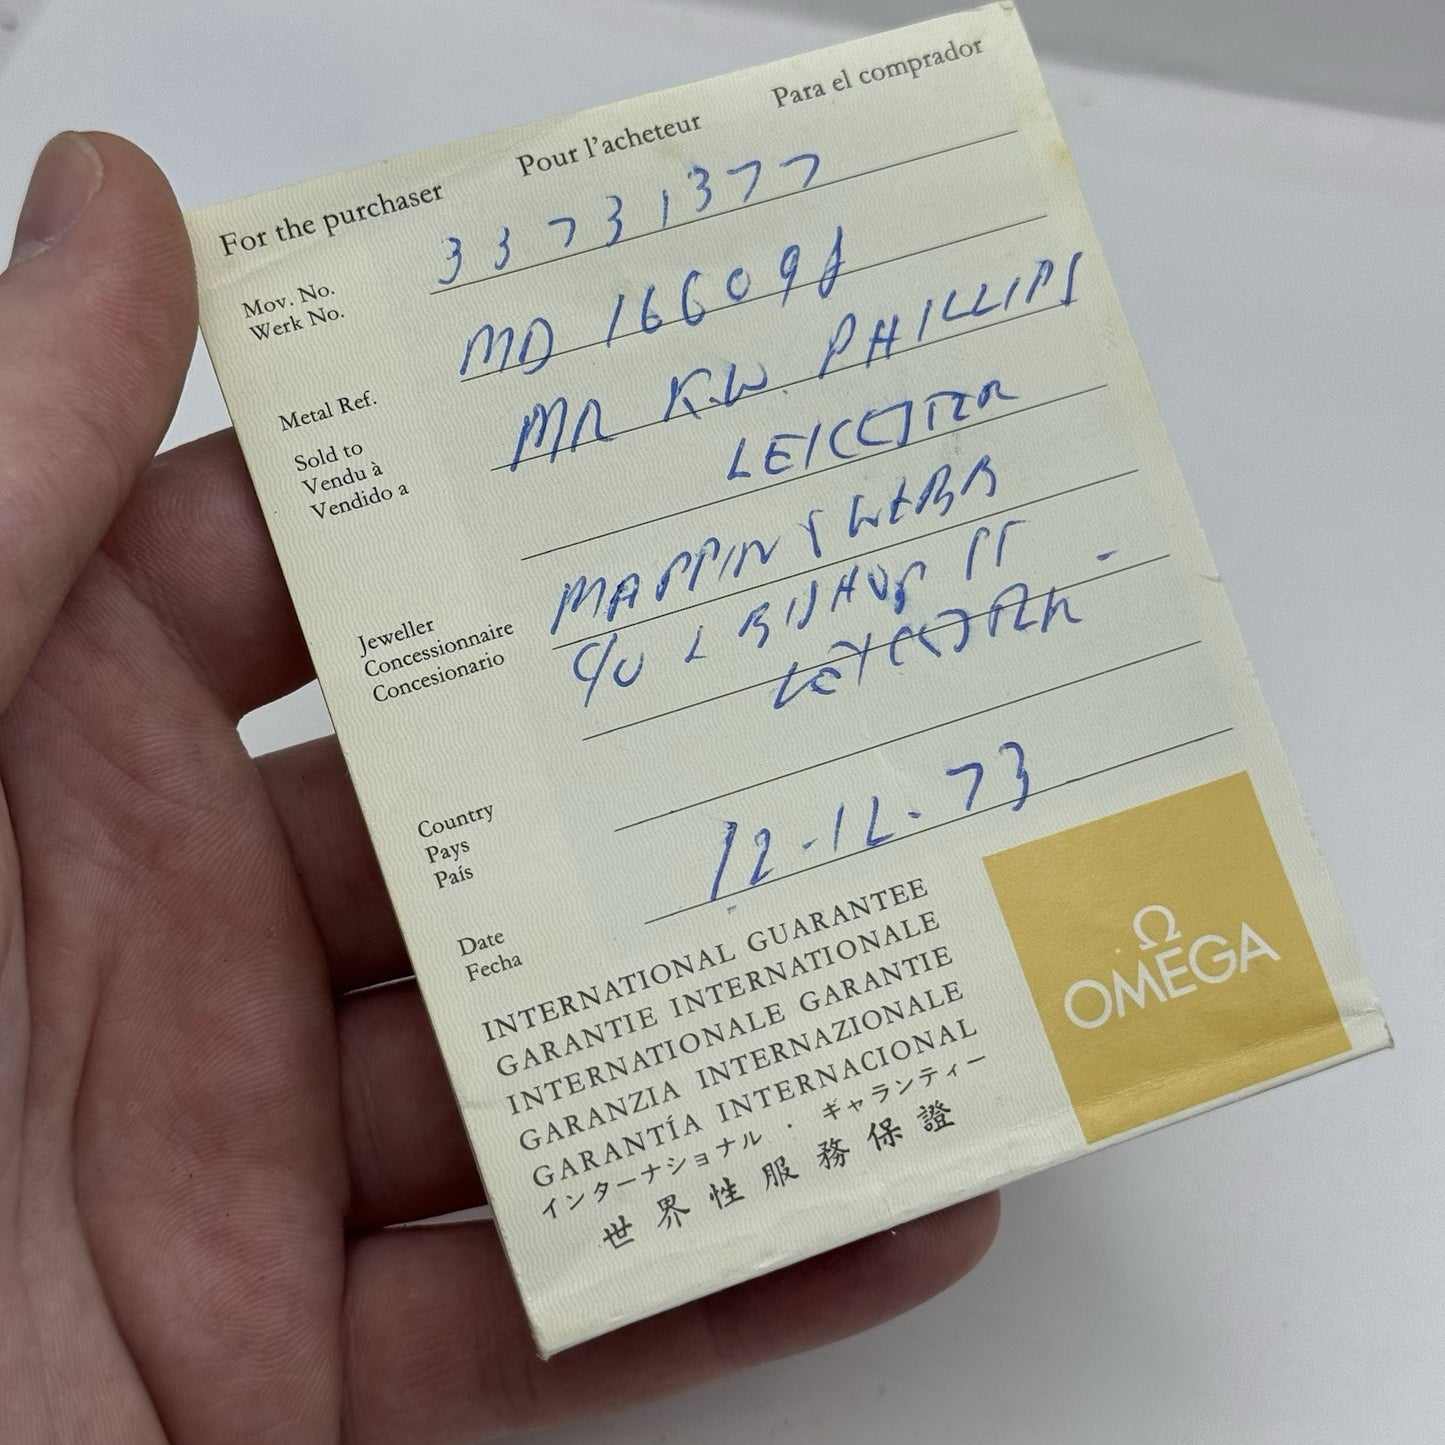 For the purchaser Pour l'acheteur Para el comprador
Mov. No. 33731377
Werk No.
Metal Ref. MD 166098
Sold to MR K.W. PHILLIPS
Vendu à
Vendido a LEICESTER
Jeweller MAPPIN & WEBB
Concessionnaire
Concesionario BISHOP ST
LEICESTER
Country
Pays
País
Date 12-12-73
Fecha
INTERNATIONAL GUARANTEE
GARANTIE INTERNATIONALE
INTERNATIONALE GARANTIE
GARANZIA INTERNAZIONALE
GARANTÍA INTERNACIONAL
インターナショナル・ギャランティー
世界性服務保證
Ω
OMEGA